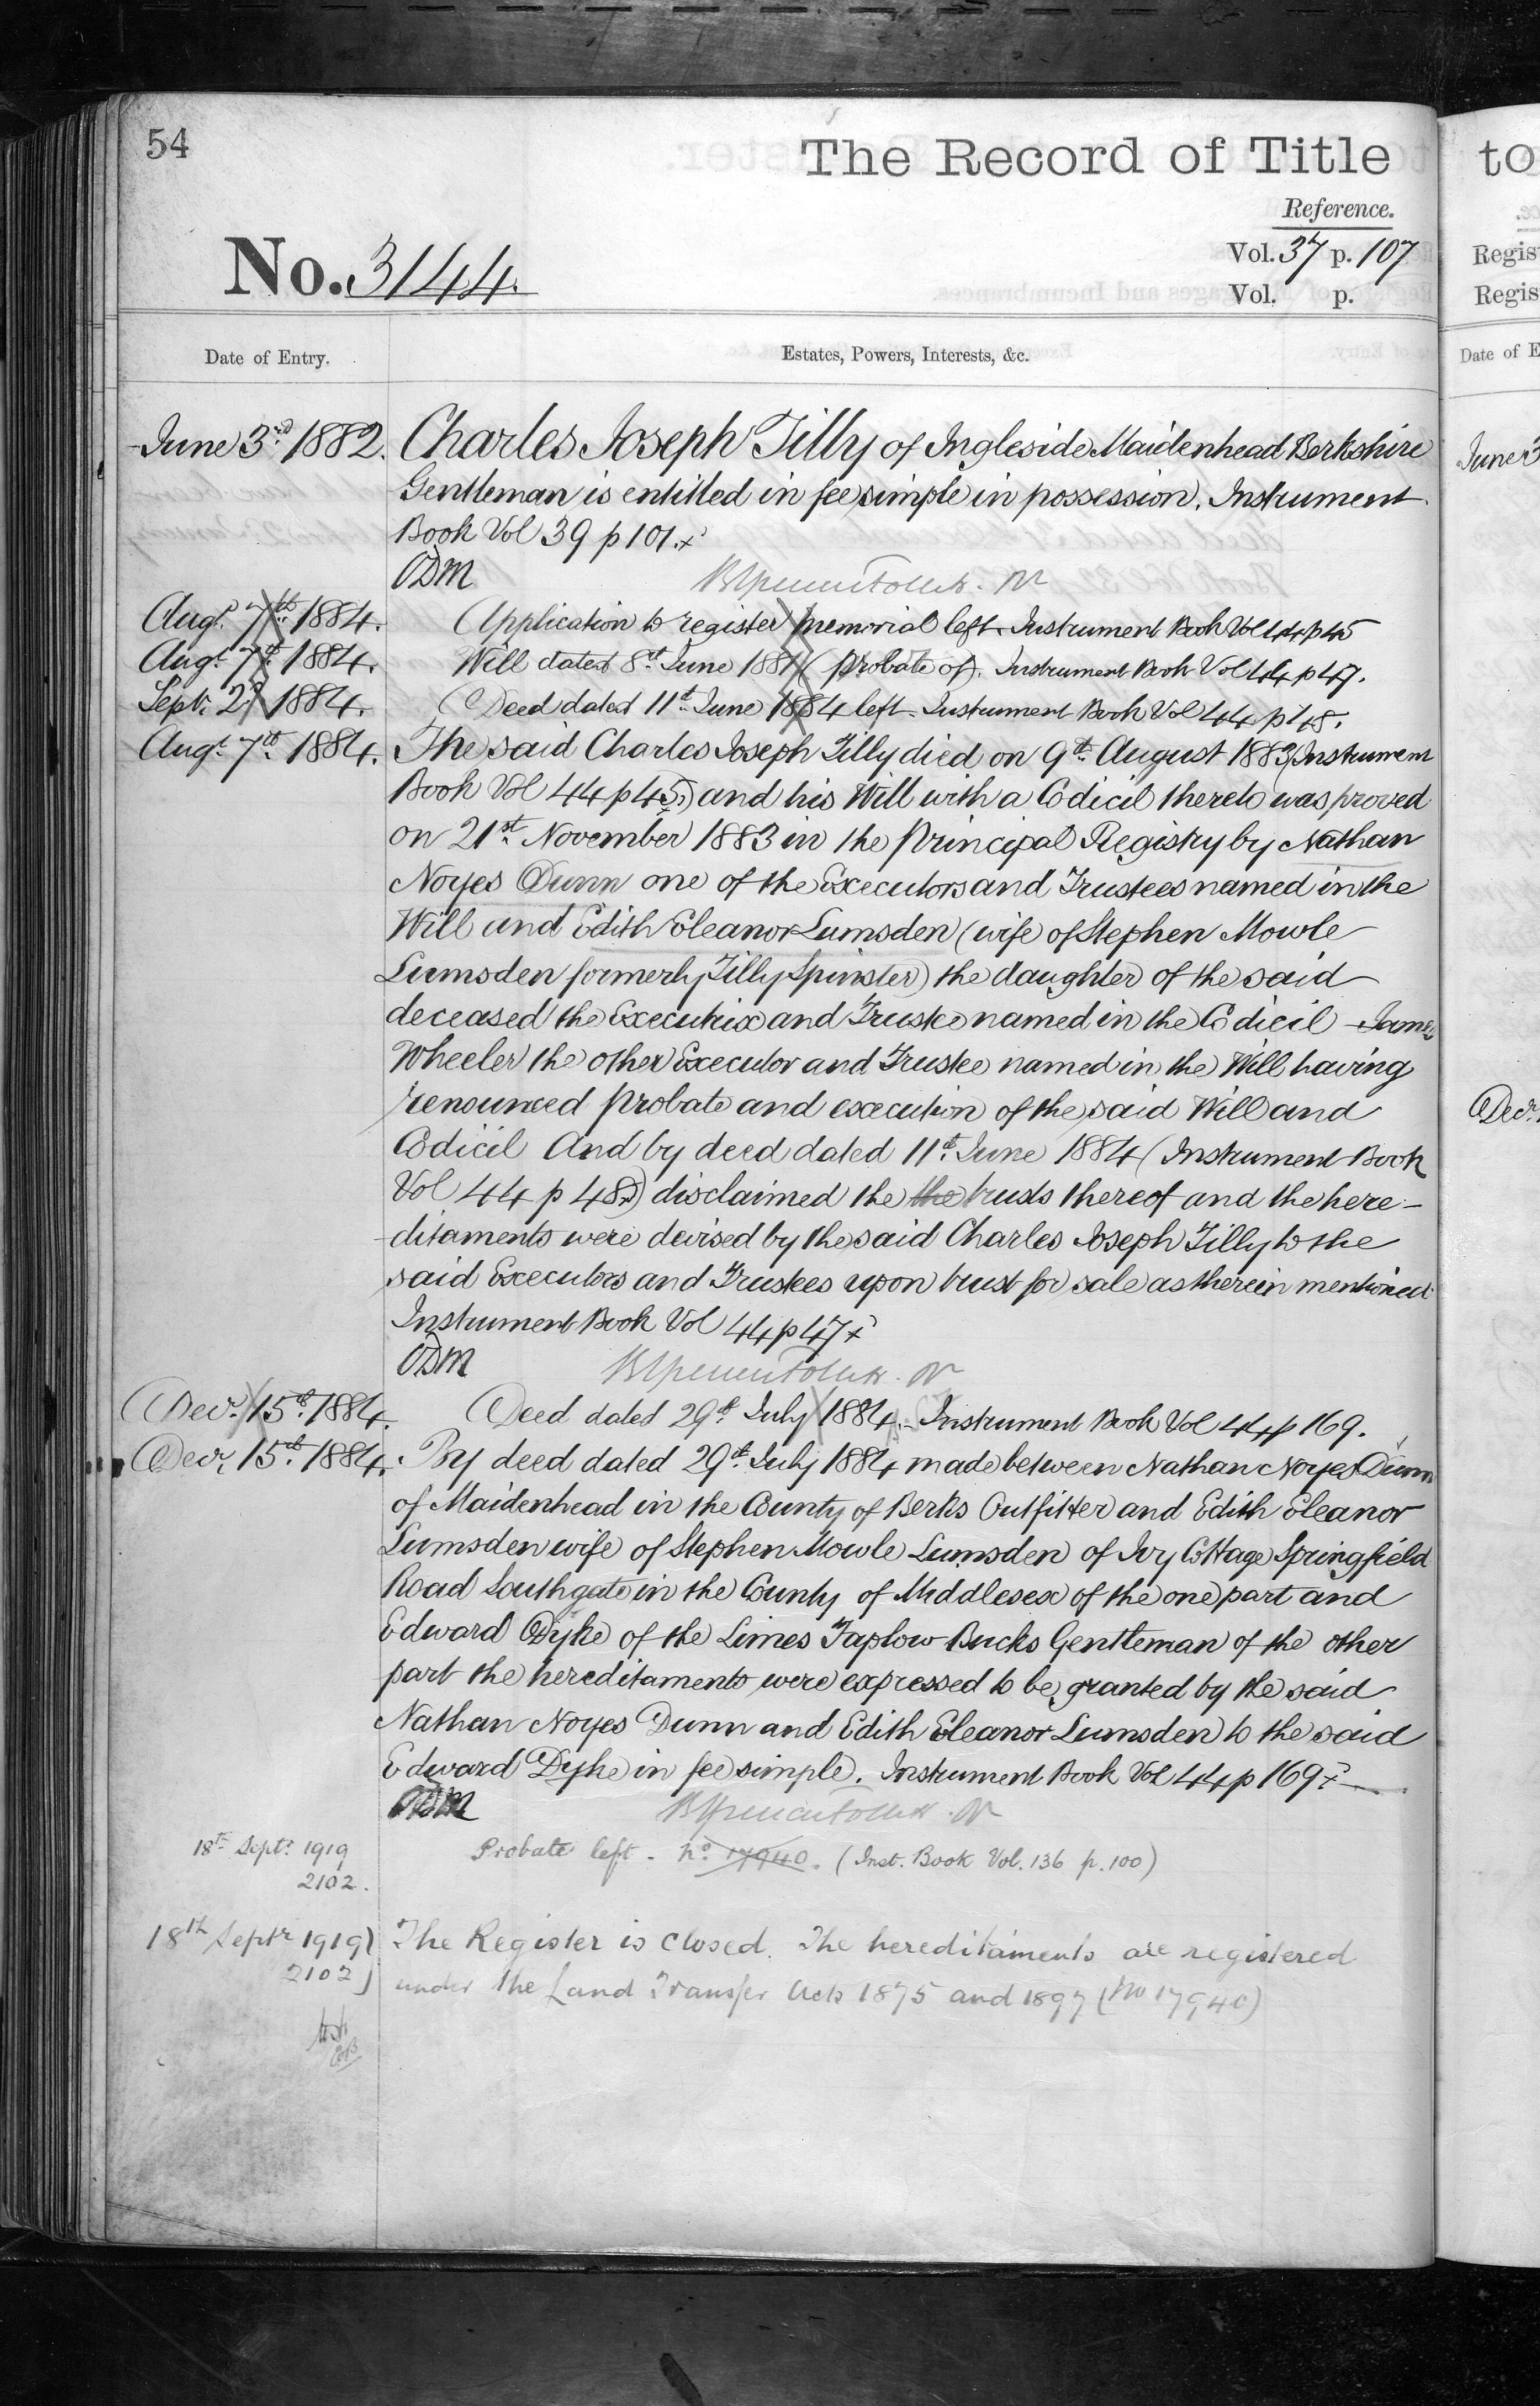 54
The Record of Title
to
Reference.
No. 3144.
Vol. 37 p. 107
Vol. p.
Regis
Regis
Date of Entry.
Estates, Powers, Interests, &c.
Date of E
June 3rd 1882. Charles Joseph Tilly of Ingleside Maidenhead Berkshire
June 3
Gentleman is entitled in fee simple in possession. Instrument
Book Vol 39 p 101.x
ODM
Augt. 7th 1884. Application to register memorial left. Instrument Book Vol 44 p 45
Augt. 7th 1884. Will dated 8th June 1881 (probate of). Instrument Book Vol 44 p 47.
Sept. 2d 1884. Deed dated 11th June 1884 left. Instrument Book Vol 44 p 48.
Augt. 7th 1884. The said Charles Joseph Tilly died on 9th August 1883 (Instrument
Book Vol 44 p 45x) and his Will with a Codicil thereto was proved
on 21st November 1883 in the Principal Registry by Nathan
Noyes Dunn one of the Executors and Trustees named in the
Will and Edith Eleanor Lumsden (wife of Stephen Mowle
Lumsden formerly Tilly Spinster) the daughter of the said
deceased the Executrix and Trustee named in the Codicil James
Wheeler the other Executor and Trustee named in the Will having
renounced probate and execution of the said Will and
Decr.
Codicil And by deed dated 11th June 1884 (Instrument Book
Vol 44 p 48x) disclaimed the the trusts thereof and the here-
ditaments were devised by the said Charles Joseph Tilly to the
said Executors and Trustees upon trust for sale as therein mentioned
Instrument Book Vol 44 p 47 x
ODM
Decr. 15th 1884. Deed dated 29th July 1884. Instrument Book Vol 44 p 169.
Decr. 15th 1884. By deed dated 29th July 1884 made between Nathan Noyes Dunn
of Maidenhead in the County of Berks Outfitter and Edith Eleanor
Lumsden wife of Stephen Mowle Lumsden of Ivy Cottage Springfield
Road Southgate in the County of Middlesex of the one part and
Edward Dyke of the Limes Taplow Bucks Gentleman of the other
part the hereditaments were expressed to be granted by the said
Nathan Noyes Dunn and Edith Eleanor Lumsden to the said
Edward Dyke in fee simple. Instrument Book Vol 44 p 169 x
ODM
18th Septr. 1919 Probate left - No. 17940. (Inst. Book Vol. 136 p. 100)
2102.
18th Septr 1919) The Register is closed. The hereditaments are registered
2102) under the Land Transfer Acts 1875 and 1897 (No 17940)